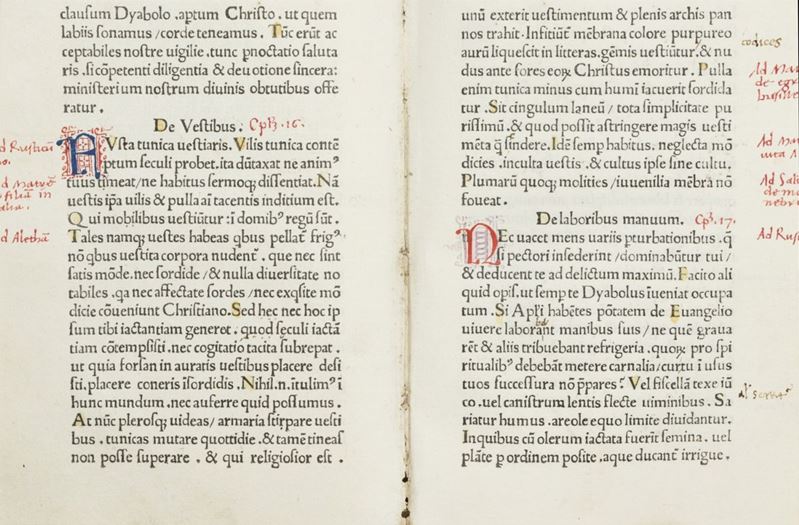 clausum Dyabolo .aptum Christo . ut quem
labiis sonamus /corde teneamus . Tūc erūt ac
ceptabiles nostre uigilie .tunc pnoctatio saluta
ris .si cōpetenti diligentia & deuotione sincera:
ministerium nostrum diuinis obtutibus offe
ratur .
De Vestibus . Cph. 16.
AVsta tunica uestiaris. Vilis tunica contē
ptum seculi probet. ita dūtaxat ne animꝰ
tuus tumeat/ne habitus sermoqꝫ dissentiat. Nā
uestis ipa uilis & pulla aĩ tacentis inditium est.
Qui mobilibus uestiūtur : ī domibꝰ regū sūt .
Tales namqꝫ uestes habeas qbus pellat̄ frigꝰ
nō qbus uestita corpora nudent̄ . que nec sint
satis mōde. nec sordide /& nulla diuersitate no
tabiles .qa nec affectate sordes /nec exqsite mō
dicie cōueniunt Christiano. Sed hec nec hoc ip
sum tibi iactantiam generet . quod seculi iactā
tiam cōtempsisti .nec cogitatiō tacita subrepat .
ut quia forsan in auratis uestibus placere desi
sti. placere coneris ī sordidis . Nihil.n.ītulimꝰ ī
hunc mundum .nec auferre quid possumus .
At nūc plerosqꝫ uideas/ armaria stirpare uesti
bus . tunicas mutare quottidie .& tamē tineas
non posse superare . & qui religiosior est .
unū exterit uestimentum & plenis archis pan
nos trahit . Infitiūt̄ mēbrana colore purpureo
codices
aurū liquescit in litteras. gēmis uestiūtur. & nu
dus ante fores eoꝝ Christus emoritur . Pulla
enim tunica minus cum humi iacuerit sordida
tur . Sit cingulum laneū / tota simplicitate pu
rissimū .& quod possit astringere magis uesti
mēta q̄ scindere. Idē semp habitus. neglecta mō
dicies .inculta uestis .& cultus ipse sine cultu.
Plumarū quoqꝫ molities /iuuenilia mēbra nō
foueat .
De laboribus manuum. Cph. 17.
NEc uacet mens uariis pturbationibus . q̄
si pectori insederint /dominabūtur tui /
& deducent te ad delictum maximū. Facito ali
quid opis. ut semp te Dyabolus īueniat occupa
tum . Si Apłi habētes pōtatem de Euangelio
uiuere laborant manibus suis / ne quē graua
rēt & aliis tribuebant refrigeria .quoꝝ pro spi
ritualibꝰ debebāt metere carnalia/curtu ī usus
tuos successura nō ppares? Vel fiscellā texe iū
co .uel canistrum lentis flecte uiminibus . Sa
riatur humus .areole equo limite diuidantur.
Inquibus cū olerum iactata fuerit semina. uel
plāte p ordinem posite .aque ducant̄ irrigue.